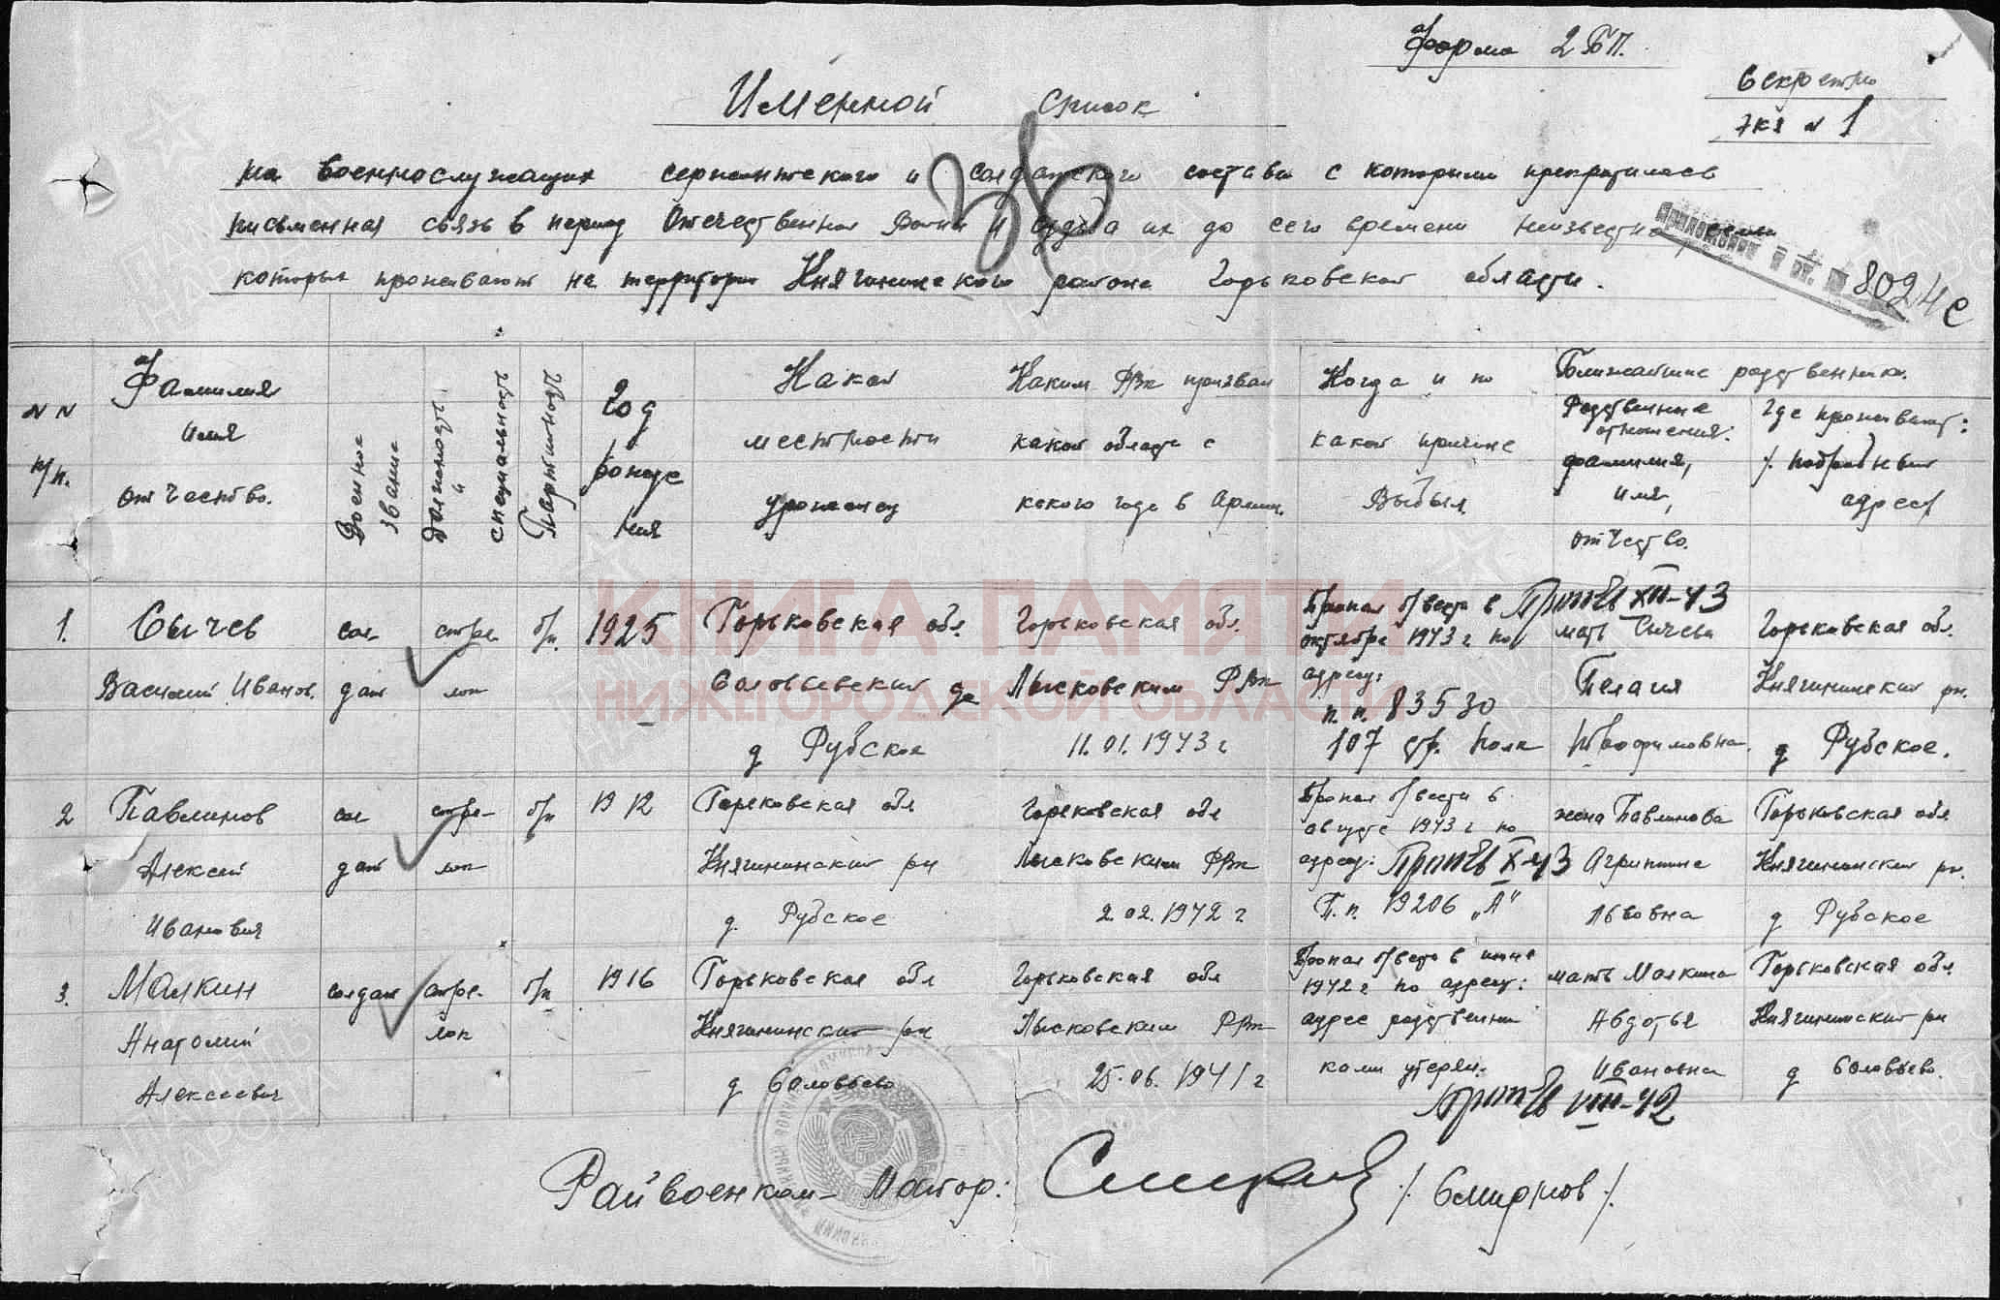 Форма 2 БП.
Секретно
экз N 1
Именной список
на военнослужащих сержантского и солдатского состава с которыми прекратилась
письменная связь в период Отечественной Войны и судьба их до сего времени неизвестна, семьи
которых проживают на территории Княгининского района Горьковской области.
38
8024с
NN п/п.
Фамилия имя отчество.
Военное звание
Должность и специальность
Партийность
Год рождения
Какой местности уроженец
Каким РВК призван какой области с какого года в Армии.
Когда и по какой причине выбыл
Ближайшие родственники.
Родственные отношения. фамилия, имя, отчество.
Где проживают: подробный адрес
1. Сычев Василий Иванов.
сол дат
стре- лок
б/п.
1925
Горьковская обл. Соловьевский д. Рубское
Горьковская обл. Лысковским РВК 11.01.1943 г
Пропал б/вести в октябре 1943 г по адресу: п.п. 83530 107 стр. полк
Проп б/в XII-43
мать Сычева Пелагия
Горьковская обл. Княгининский рн. д Рубское.
2 Павлинов Алексей Иванович
сол дат
стре- лок
б/п
1912
Горьковская обл Княгининский рн д. Рубское
Горьковская обл Лысковским РВК 2.02.1942 г
Пропал б/вести в августе 1943 г по адресу: П.п. 19206 „А"
Проп б/в X-43
жена Павлинова Агрипина Львовна
Горьковская обл Княгининский рн. д Рубское
3. Малкин Анатолий Алексеевич
солдат
стре- лок
б/п
1916
Горьковская обл Княгининский рн д Соловьево
Горьковская обл Лысковским РВК 25.06.1941 г
Пропал б/вести в июне 1942 г по адресу: адрес родственни ками утерян.
Проп б/в VIII-42
мать Малкина Авдотья Ивановна
Горьковская обл Княгининский рн д Соловьево.
Райвоенком - Майор: /Смирнов/.
КНИГА ПАМЯТИ
НИЖЕГОРОДСКОЙ ОБЛАСТИ
ПАМЯТЬ НАРОДА